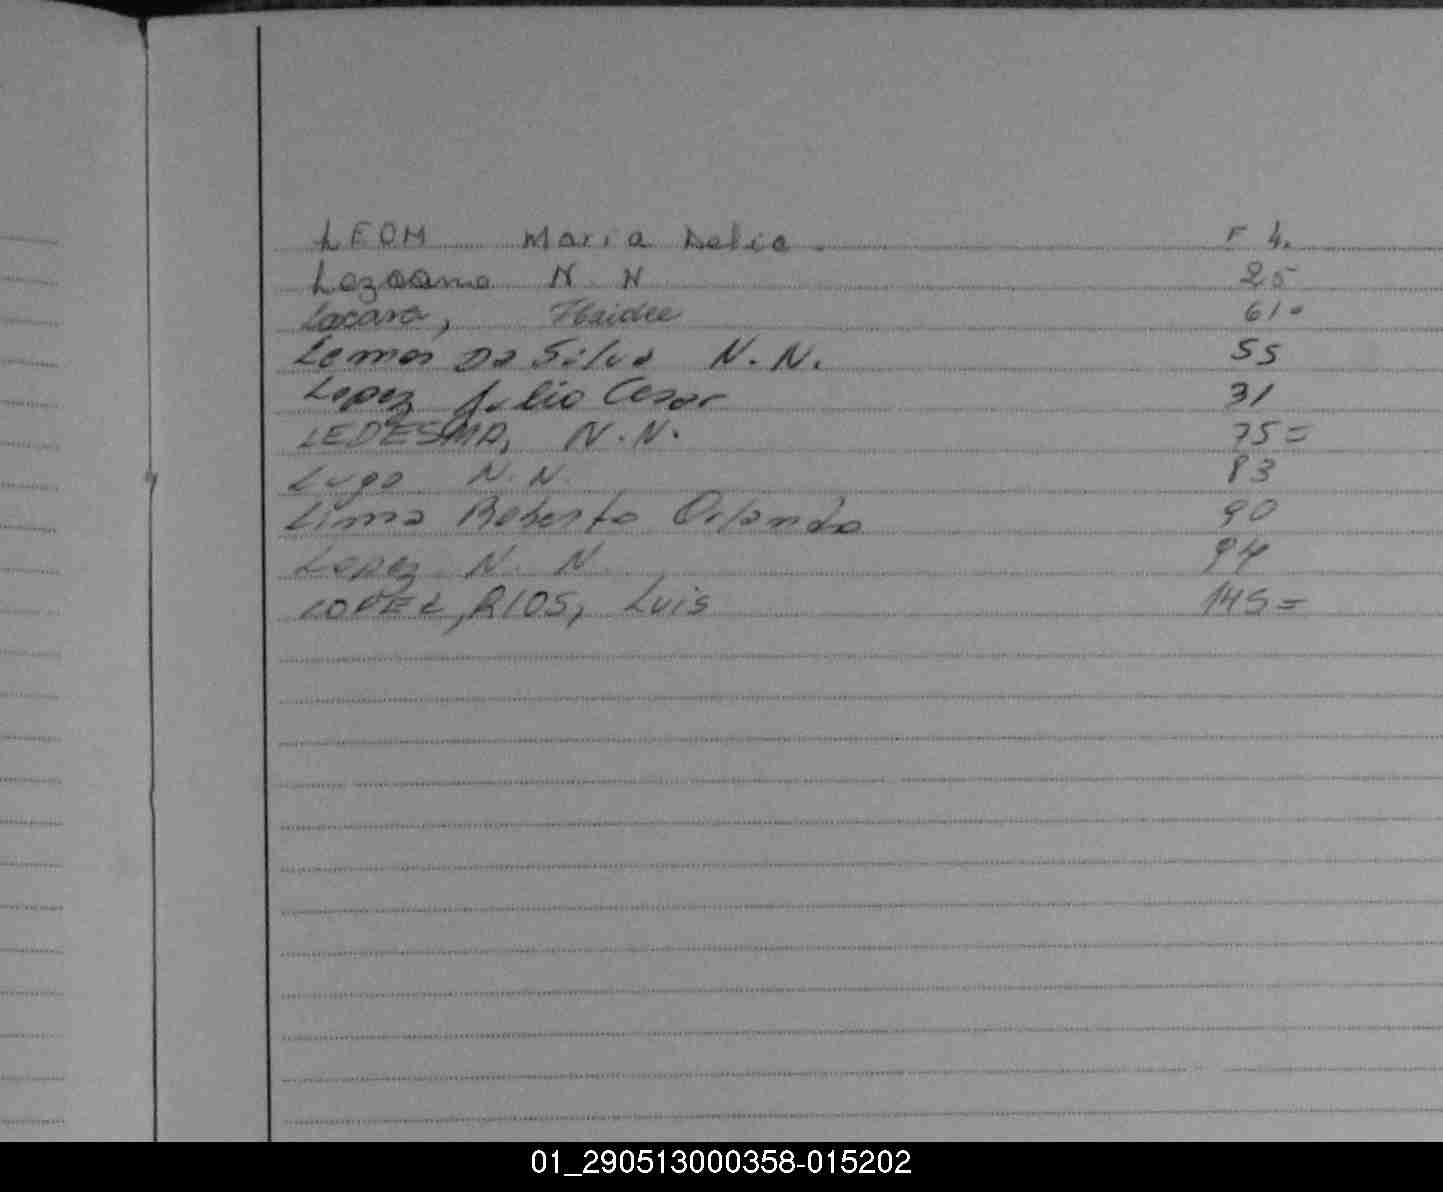 LEOM Maria Delia. F 4.
Lezcano N. N 25
Lacava, Haidee 61.
Lemos Da Silva N.N. 55
Lopez Julio Cesar 31
LEDESMA, N.N. 75=
Lugo N.N. 83
Lima Roberto Orlando 90
Lopez N. N 94
LOPEZ, RIOS, Luis 145=
01_290513000358-015202